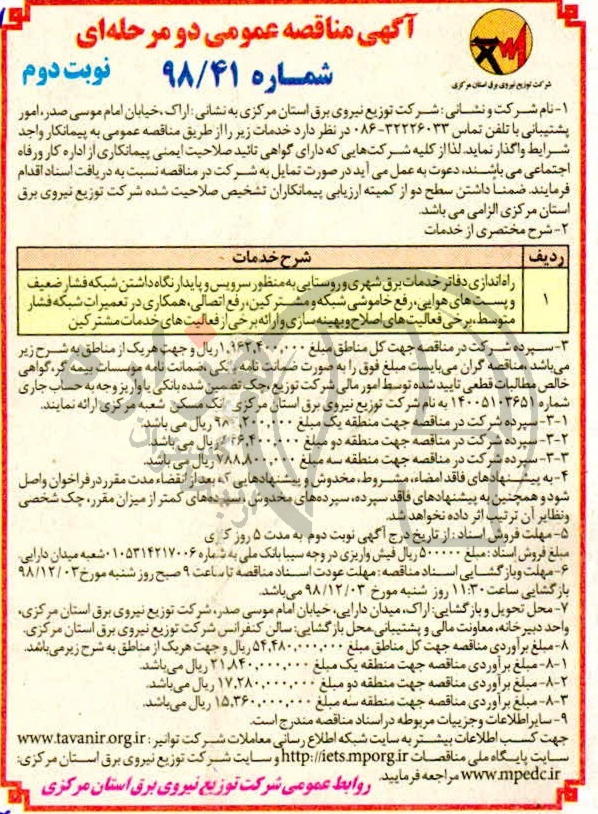 آگهی مناقصه عمومی دو مرحله‌ای
شماره ۹۸/۴۱
نوبت دوم
شرکت توزیع نیروی برق استان مرکزی
۱- نام شرکت و نشانی : شرکت توزیع نیروی برق استان مرکزی به نشانی : اراک، خیابان امام موسی صدر، امور
پشتیبانی با تلفن تماس ۳۲۲۲۶۰۳۳-۰۸۶ در نظر دارد خدمات زیر را از طریق مناقصه عمومی به پیمانکار واجد
شرایط واگذار نماید. لذا از کلیه شرکت‌هایی که دارای گواهی تائید صلاحیت ایمنی پیمانکاری از اداره کار ورفاه
اجتماعی می باشند، دعوت به عمل می آید در صورت تمایل به شرکت در مناقصه نسبت به دریافت اسناد اقدام
فرمایند. ضمناً داشتن سطح دو از کمیته ارزیابی پیمانکاران تشخیص صلاحیت شده شرکت توزیع نیروی برق
استان مرکزی الزامی می باشد.
۲- شرح مختصری از خدمات
ردیف شرح خدمات
راه‌اندازی دفاتر خدمات برق شهری وروستایی به منظور سرویس و پایدار نگاه داشتن شبکه فشار ضعیف
۱ و پست های هوایی، رفع خاموشی شبکه و مشترکین، رفع اتصالی، همکاری در تعمیرات شبکه فشار
متوسط، برخی فعالیت‌های اصلاح وبهینه سازی و ارائه برخی از فعالیت‌های خدمات مشترکین
۳- سپرده شرکت در مناقصه جهت کل مناطق مبلغ ۱,۹۶۲,۴۰۰,۰۰۰ ریال و جهت هریک از مناطق به شرح زیر
می‌باشد. مناقصه گران می‌بایست مبلغ فوق را به صورت ضمانت نامه بانکی، ضمانت نامه مؤسسات بیمه گر، گواهی
خالص مطالبات قطعی تایید شده توسط امور مالی شرکت توزیع، چک تضمین شده بانکی یا واریز وجه به حساب جاری
شماره ۱۴۰۰۵۱۰۳۶۵۱ به نام شرکت توزیع نیروی برق استان مرکزی بانک مسکن شعبه مرکزی ارائه نمایند.
۳-۱- سپرده شرکت در مناقصه جهت منطقه یک مبلغ ۲۰۰,۰۰۰ ریال می باشد.
۳-۲- سپرده شرکت در مناقصه جهت منطقه دو مبلغ ۴۰۰,۰۰۰ ریال می باشد.
۳-۳- سپرده شرکت در مناقصه جهت منطقه سه مبلغ ریال می باشد.
۴- به پیشنهادهای فاقد امضاء، مشروط، مخدوش و پیشنهادهایی که بعد از انقضاء مدت مقرر در فراخوان واصل
شود و همچنین به پیشنهادهای فاقد سپرده، سپرده‌های مخدوش، سپرده‌های کمتر از میزان مقرر، چک شخصی
ونظایر آن ترتیب اثر داده نخواهد شد.
۵- مهلت فروش اسناد : از تاریخ درج آگهی نوبت دوم به مدت ۵ روز کاری
مبلغ فروش اسناد : مبلغ ۵۰۰۰۰۰ ریال فیش واریزی در وجه سیبا بانک ملی به شماره ۰۱۰۵۳۱۴۲۱۷۰۰۶ شعبه میدان دارایی.
۶- مهلت وبازگشایی اسناد مناقصه : مهلت عودت اسناد مناقصه تا ساعت ۹ صبح روز شنبه مورخ ۹۸/۱۲/۰۳
بازگشایی ساعت ۱۱:۳۰ روز شنبه مورخ ۹۸/۱۲/۰۳ می‌باشد.
۷- محل تحویل و بازگشایی: اراک، میدان دارایی، خیابان امام موسی صدر، شرکت توزیع نیروی برق استان مرکزی،
واحد دبیرخانه، معاونت مالی و پشتیبانی.محل بازگشایی: سالن کنفرانس شرکت توزیع نیروی برق استان مرکزی.
۸- مبلغ برآوردی مناقصه جهت کل مناطق مبلغ ۵۴,۴۸۰,۰۰۰,۰۰۰ ریال و جهت هریک از مناطق به شرح زیر می‌باشد.
۸-۱- مبلغ برآوردی مناقصه جهت منطقه یک مبلغ ۲۱,۸۴۰,۰۰۰,۰۰۰ ریال می‌باشد.
۸-۲- مبلغ برآوردی مناقصه جهت منطقه دو مبلغ ۱۷,۲۸۰,۰۰۰,۰۰۰ ریال می‌باشد.
۸-۳- مبلغ برآوردی مناقصه جهت منطقه سه مبلغ ۱۵,۳۶۰,۰۰۰,۰۰۰ ریال می‌باشد.
۹- سایر اطلاعات وجزییات مربوطه در اسناد مناقصه مندرج است.
جهت کسب اطلاعات بیشتر به سایت شبکه اطلاع رسانی معاملات شرکت توانیر : www.tavanir.org.ir
سایت پایگاه ملی مناقصات http://iets.mporg.ir و سایت شرکت توزیع نیروی برق استان مرکزی:
www.mpedc.ir مراجعه فرمایید.
روابط عمومی شرکت توزیع نیروی برق استان مرکزی